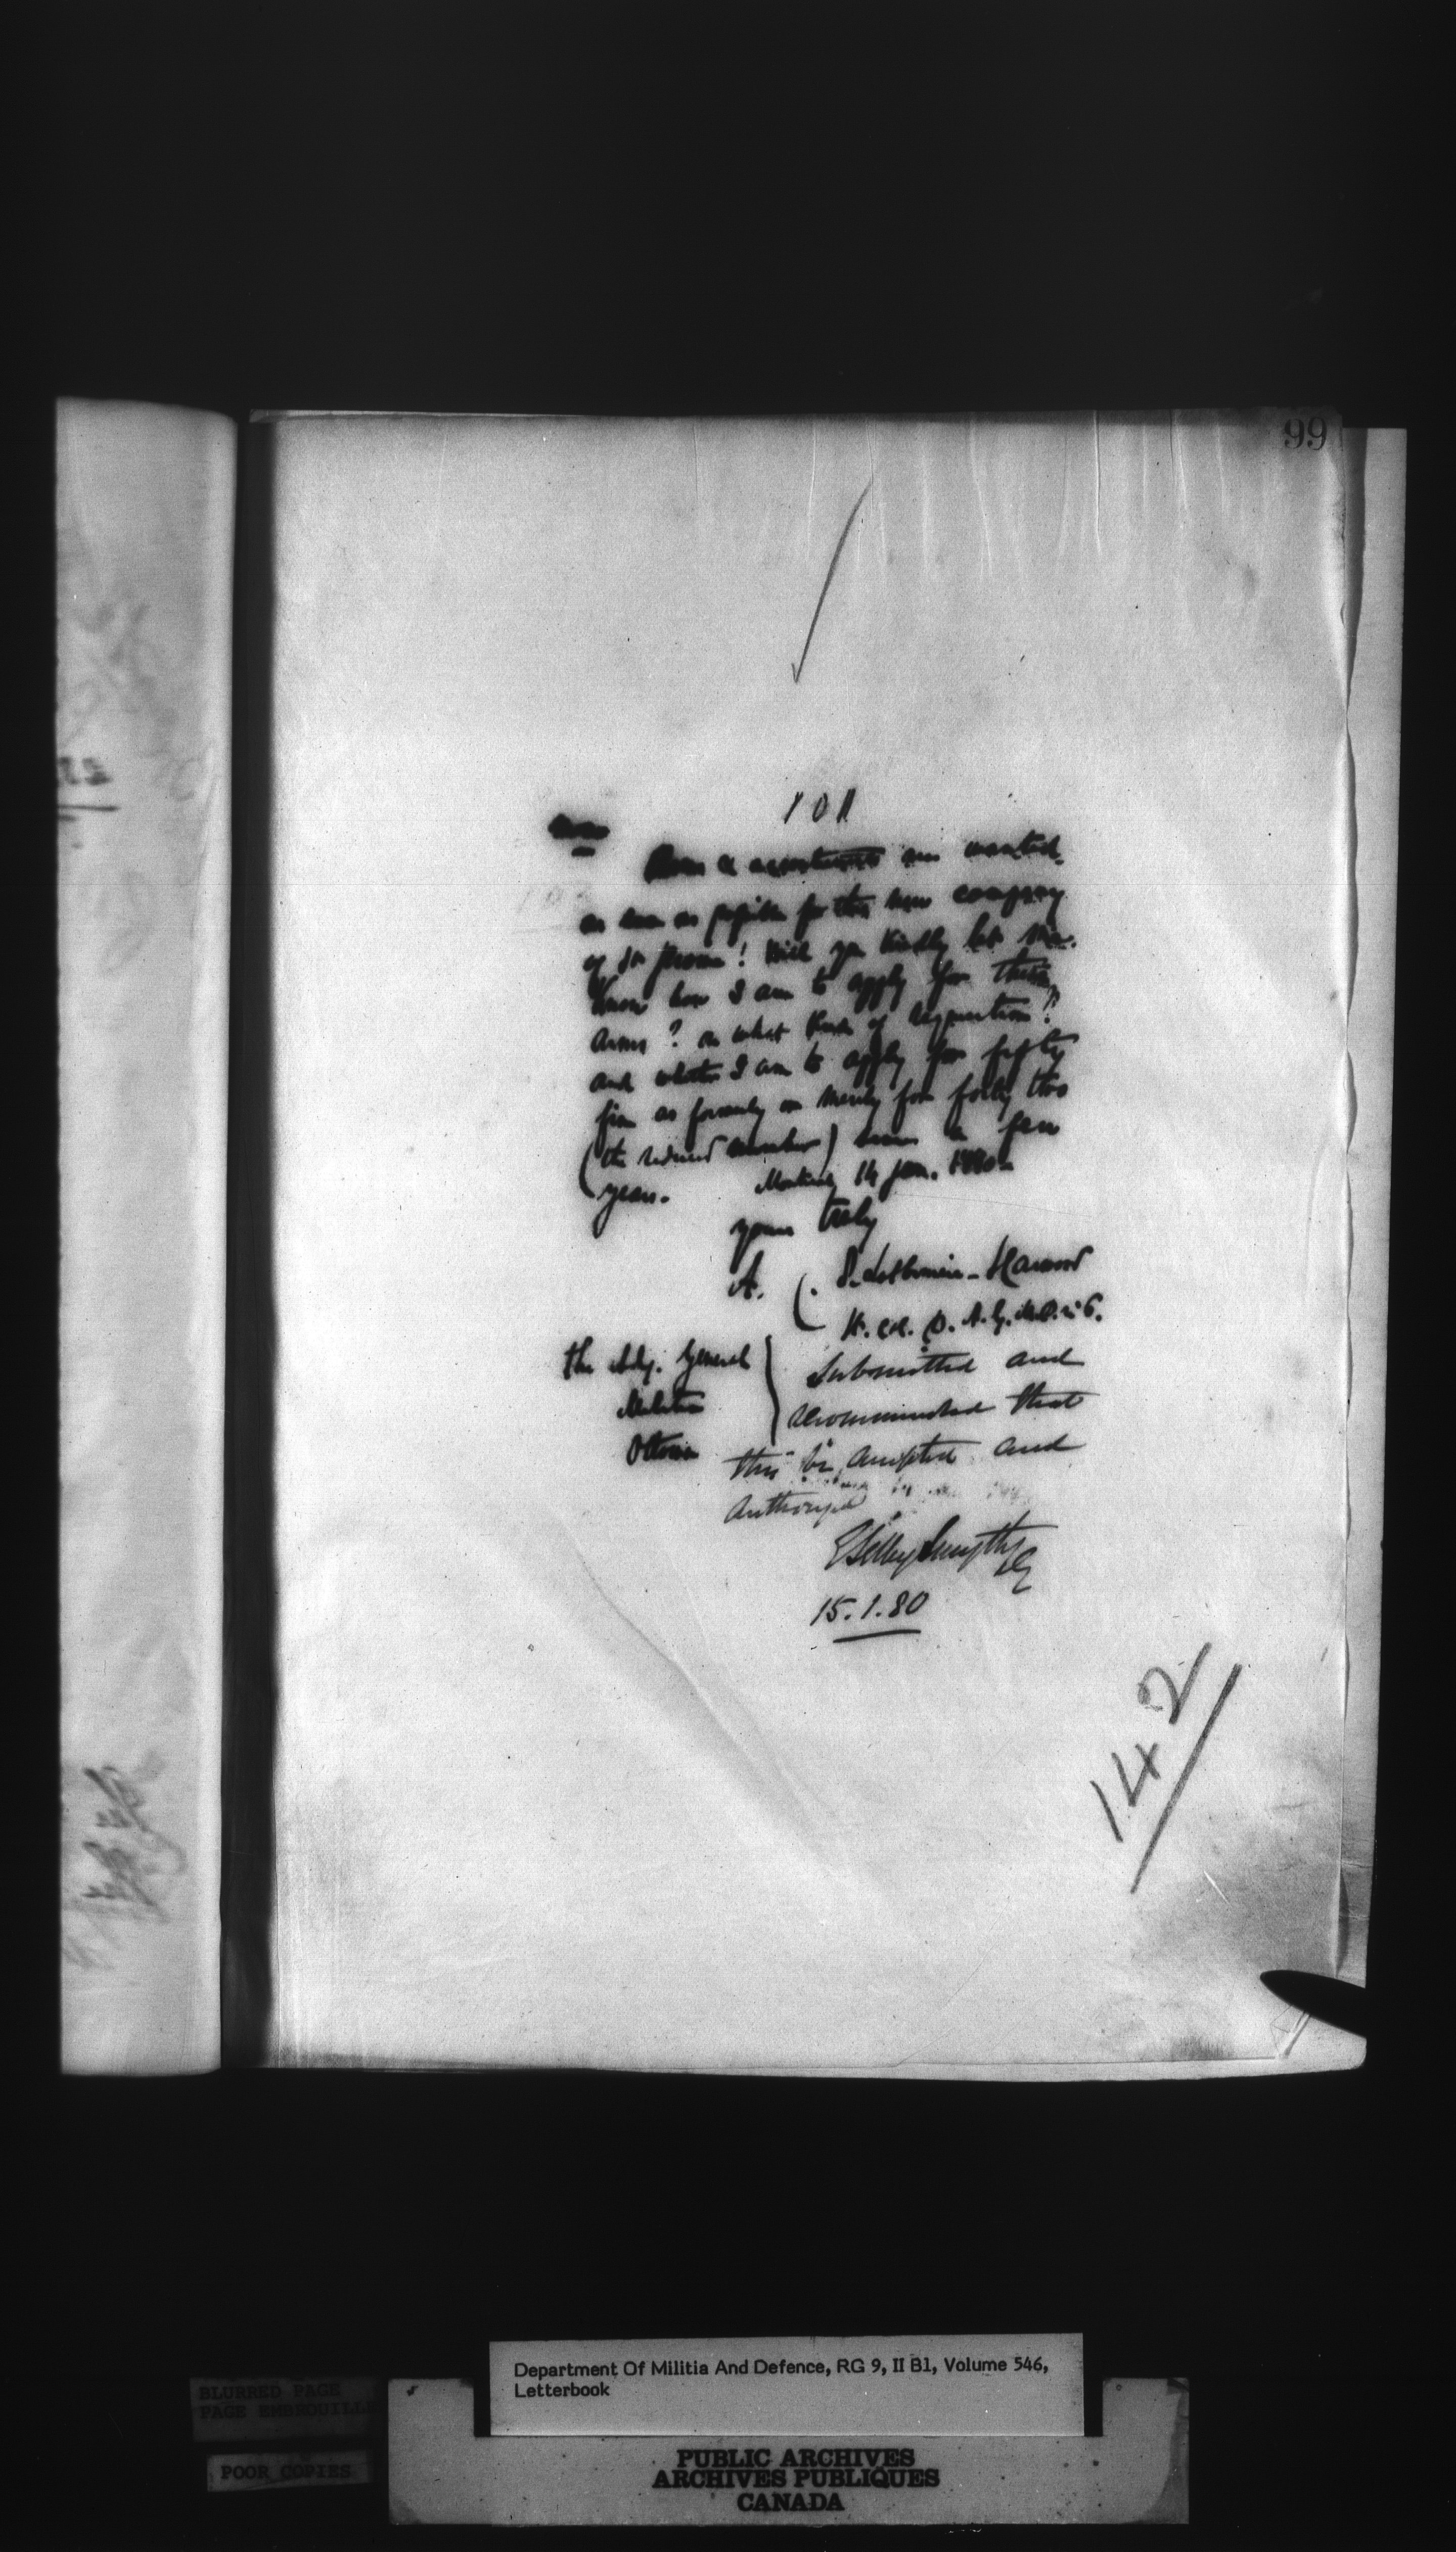 99
101
Arms & accoutrements are wanted
as soon as possible for this new company
of St Will you kindly let me
know how I am to apply for these
arms? on what kind of requisition?
and whether I am to apply for fifty
five as formerly or merely for forty two
(the reduced number) since a few
years. Montreal 14 Jan. 1880
yours truly
A. C. DeLotbinière-Harwood
Lt. Col. D.A.G. M.D. No 6.
The Adj. General
Militia
Ottawa
Submitted and
recommended that
this be accepted and
authorized
E Selby Smyth
15.1.80
142
Department Of Militia And Defence, RG 9, II B1, Volume 546,
Letterbook
BLURRED PAGE
PAGE EMBROUILLE
POOR COPIES
PUBLIC ARCHIVES
ARCHIVES PUBLIQUES
CANADA